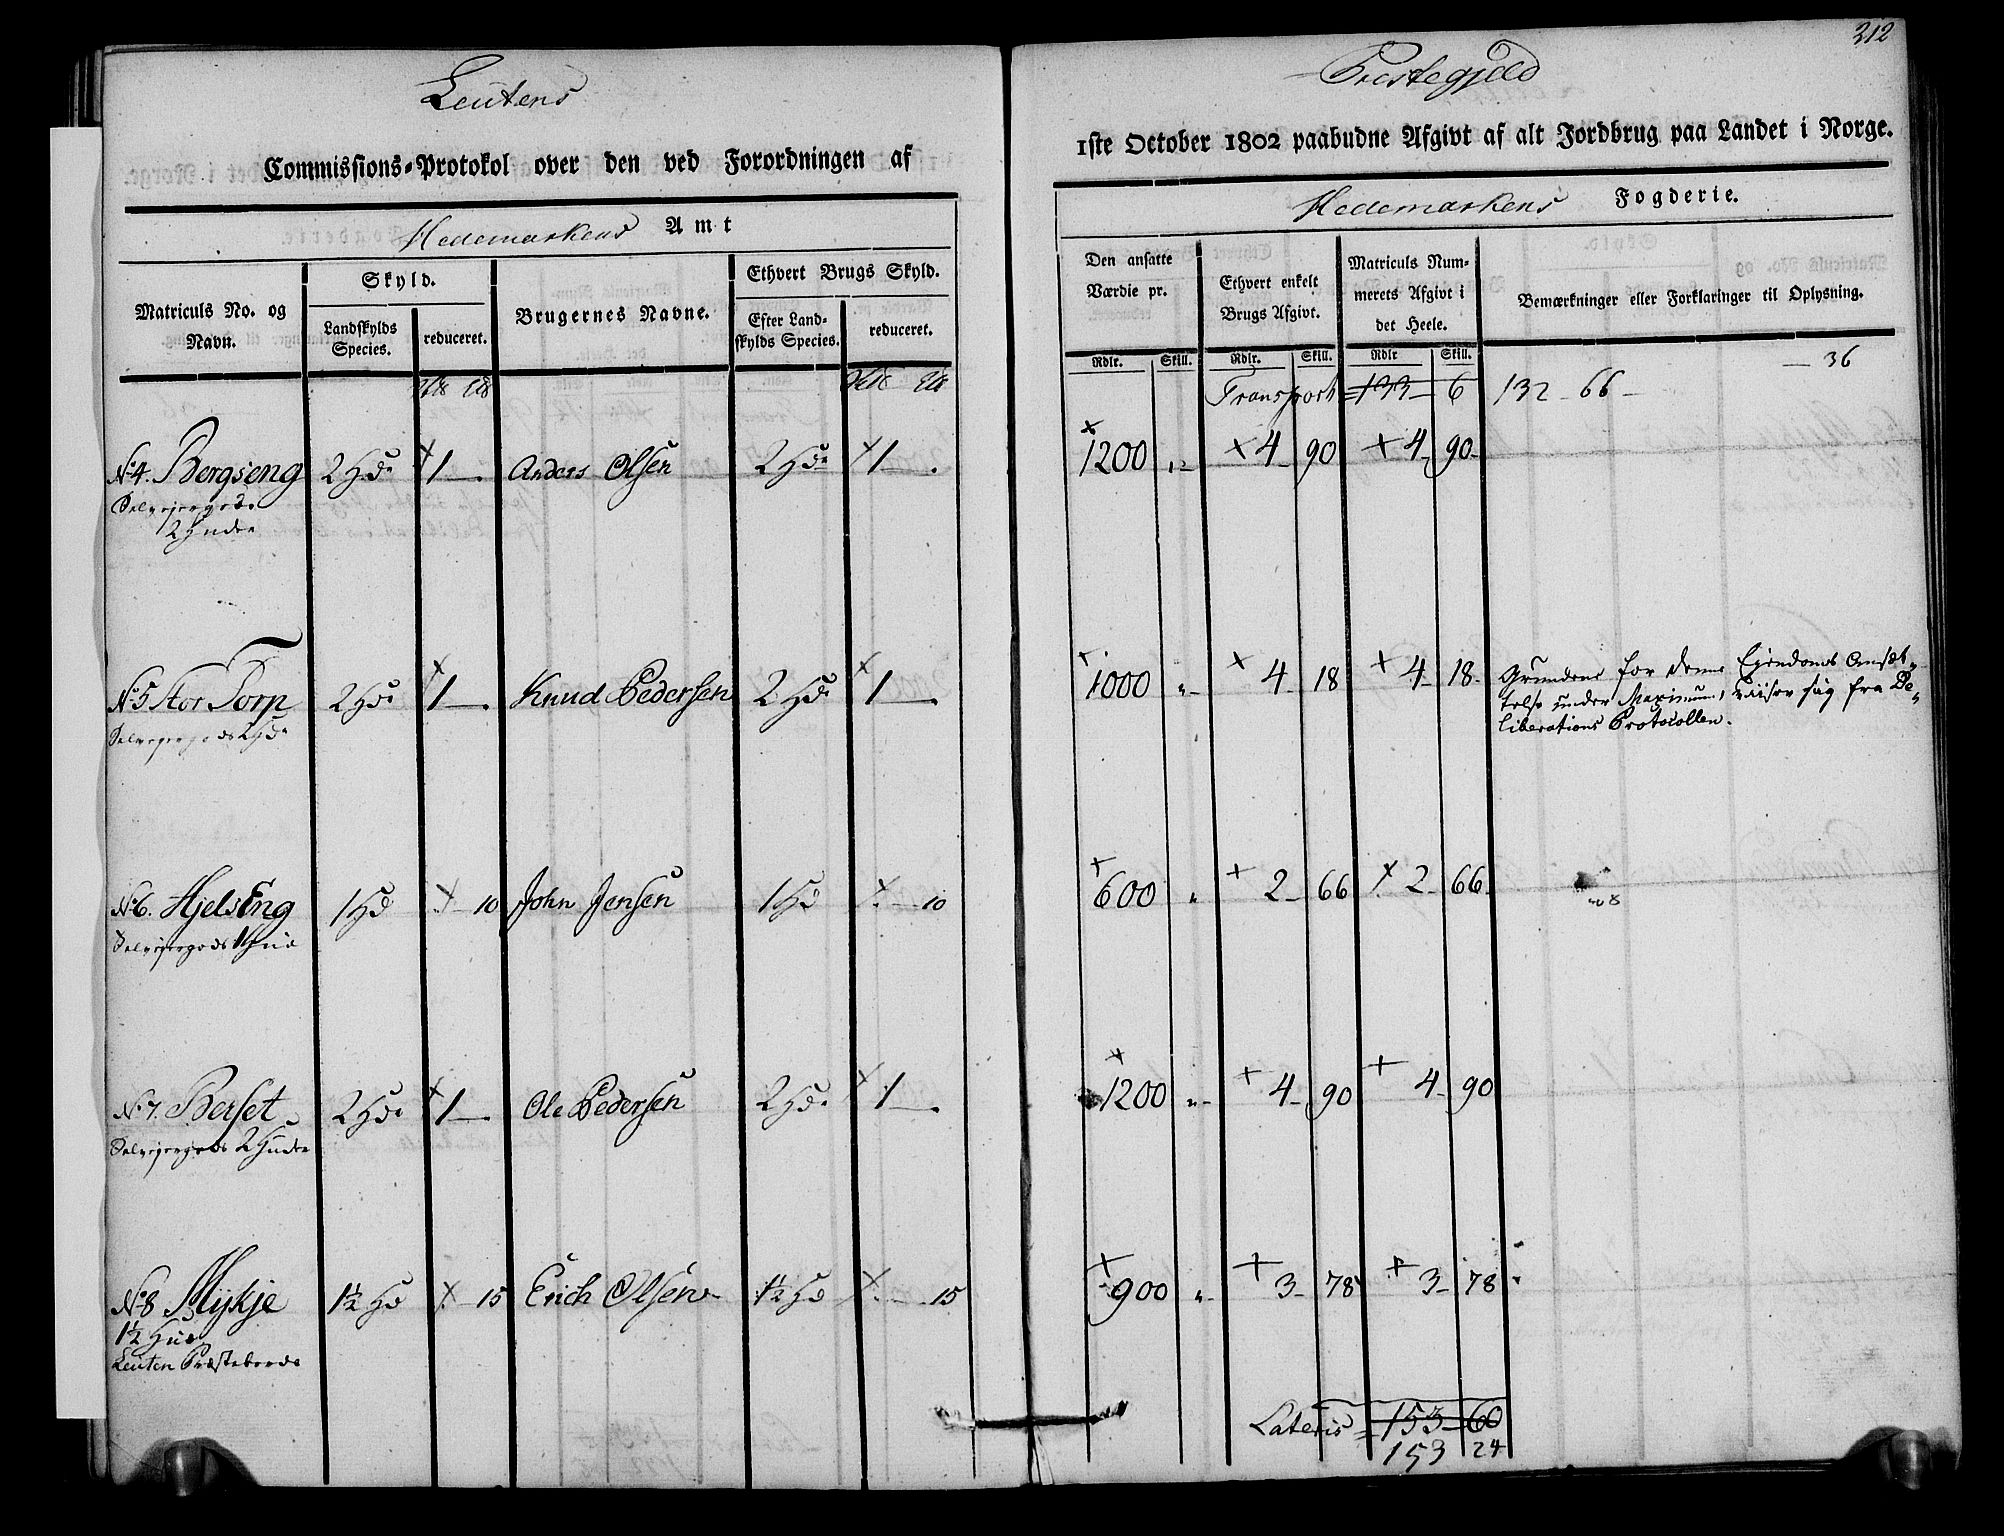 Leutens
Commissions-Protokol over den ved Forordningen af
Hedemarkens Amt
Matriculs No. og Navn.
Skyld.
Landskylds Species.
reduceret.
Brugernes Navne.
Ethvert Brugs Skyld.
Efter Landskylds Species.
reduceret.
No 4. Bergseng 2 Hde 1 — . Anders Olsen 2 Hde 1 — .
Selvejergods
2 Huder
No 5 Stor Torp 2 Hde 1 — . Knud Pedersen 2 Hde 1 — .
Selvejergods 2 Hde
No 6. HjelsEng 1 Hd . — 10 John Jensen 1 Hd . — 10
Selvejergods 1 Hud
No 7. Berset 2 Hde 1 — . Ole Pedersen 2 Hde 1 — .
Selvejergods 2 Huder
No 8 Mykje 1½ Hd . — 15 Erich Olsen 1½ Hd . — 15
1½ Hud
Leuten Præstebord
312
Præstegjeld
1ste October 1802 paabudne Afgivt af alt Jordbrug paa Landet i Norge.
Hedemarkens Fogderie.
Den ansatte Værdie pr.
Ethvert enkelt Brugs Afgivt.
Matriculs Nummerets Afgivt i det Heele.
Bemærkninger eller Forklaringer til Oplysning.
Rdlr. Skill. Rdlr. Skill. Rdlr Skill.
— 36
Transport 133 — 6 132 — 66 —
1200 „ 4 — 90 4 — 90
1000 „ 4 — 18 4 — 18 Grunden for denne Ejendoms Ansæt-
telse under Maximum, viiser sig fra De-
liberations Protocollen.
600 „ 2 — 66 2 — 66
1200 „ 4 — 90 4 — 90
900 „ 3 — 78 3 — 78
Lateris 153 — 60
153 24